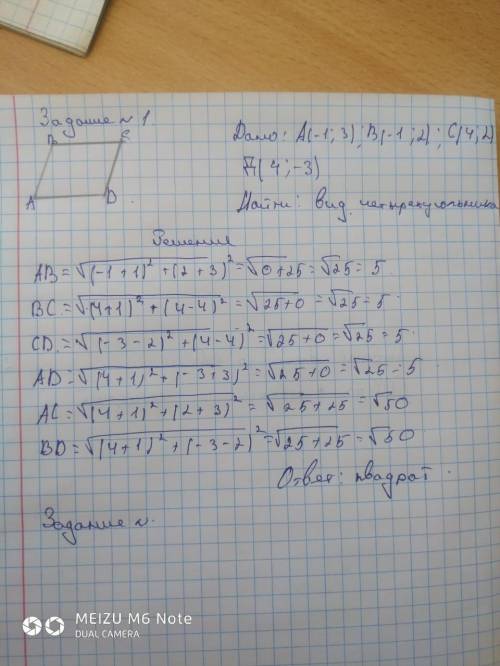 Задание № 1
B C
A D
Дано: А(-1; 3); В(-1; 2); С(4; 2)
Д(4; -3)
Найти: вид четырехугольника
Решения
AB = √(-1+1)² + (2+3)² = √0+25 = √25 = 5
BC = √(4+1)² + (4-4)² = √25+0 = √25 = 5
CD = √(-3-2)² + (4-4)² = √25+0 = √25 = 5
AD = √(4+1)² + (-3+3)² = √25+0 = √25 = 5
AC = √(4+1)² + (2+3)² = √25+25 = √50
BD = √(4+1)² + (-3-2)² = √25+25 = √50
Ответ: квадрат
Задание №
MEIZU M6 Note
DUAL CAMERA